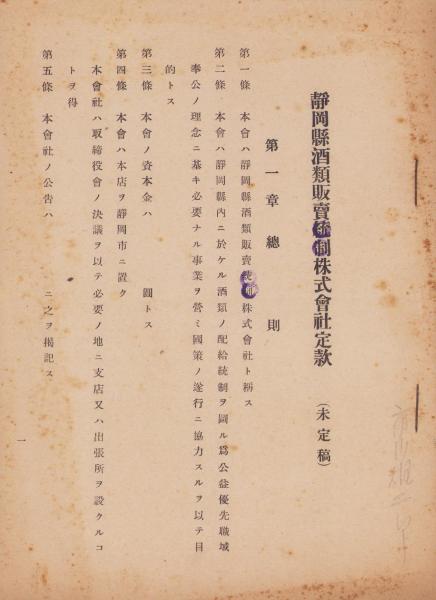 靜岡縣酒類販賣統制株式會社定款
（未定稿）
第一章總則
第一條 本會ハ靜岡縣酒類販賣統制株式會社ト稱ス
第二條 本會ハ靜岡縣內ニ於ケル酒類ノ配給統制ヲ圖ル爲公益優先職域
奉公ノ理念ニ基キ必要ナル事業ヲ營ミ國策ノ遂行ニ協力スルヲ以テ目
的トス
第三條 本會ノ資本金ハ 圓トス
第四條 本會ハ本店ヲ靜岡市ニ置ク
本會社ハ取締役會ノ決議ヲ以テ必要ノ地ニ支店又ハ出張所ヲ設クルコ
トヲ得
第五條 本會社ノ公告ハ ニ之ヲ揭記ス
一